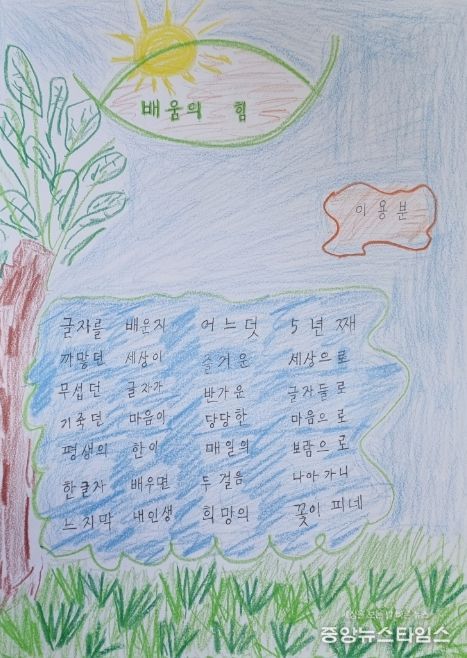 배움의 힘
이용분
글자를 배운지 어느덧 5년째
까망던 세상이 즐거운 세상으로
무섭던 글자가 반가운 글자들로
기죽던 마음이 당당한 마음으로
평생의 한이 매일의 보람으로
한글자 배우면 두걸음 나아가니
느지막 내인생 희망의 꽃이 피네
중앙뉴스타임스